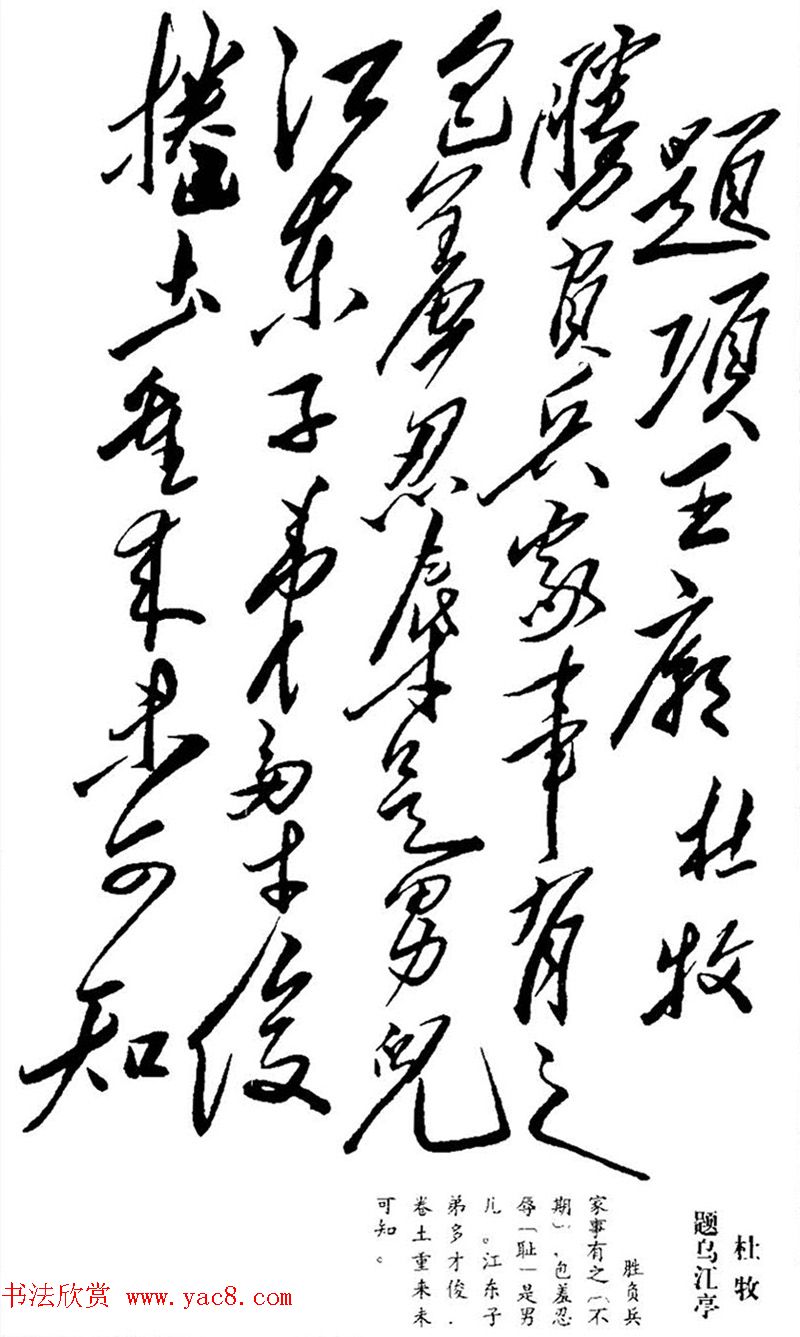 题项王廟 杜牧
勝負兵家事有之
包羞忍辱是男兒
江东子弟多才俊
捲土重来未可知
杜牧
题乌江亭
胜负兵
家事有之（不
期），包羞忍
辱（耻）是男
儿。江东子
弟多才俊，
卷土重来未
可知。
书法欣赏 www.yac8.com